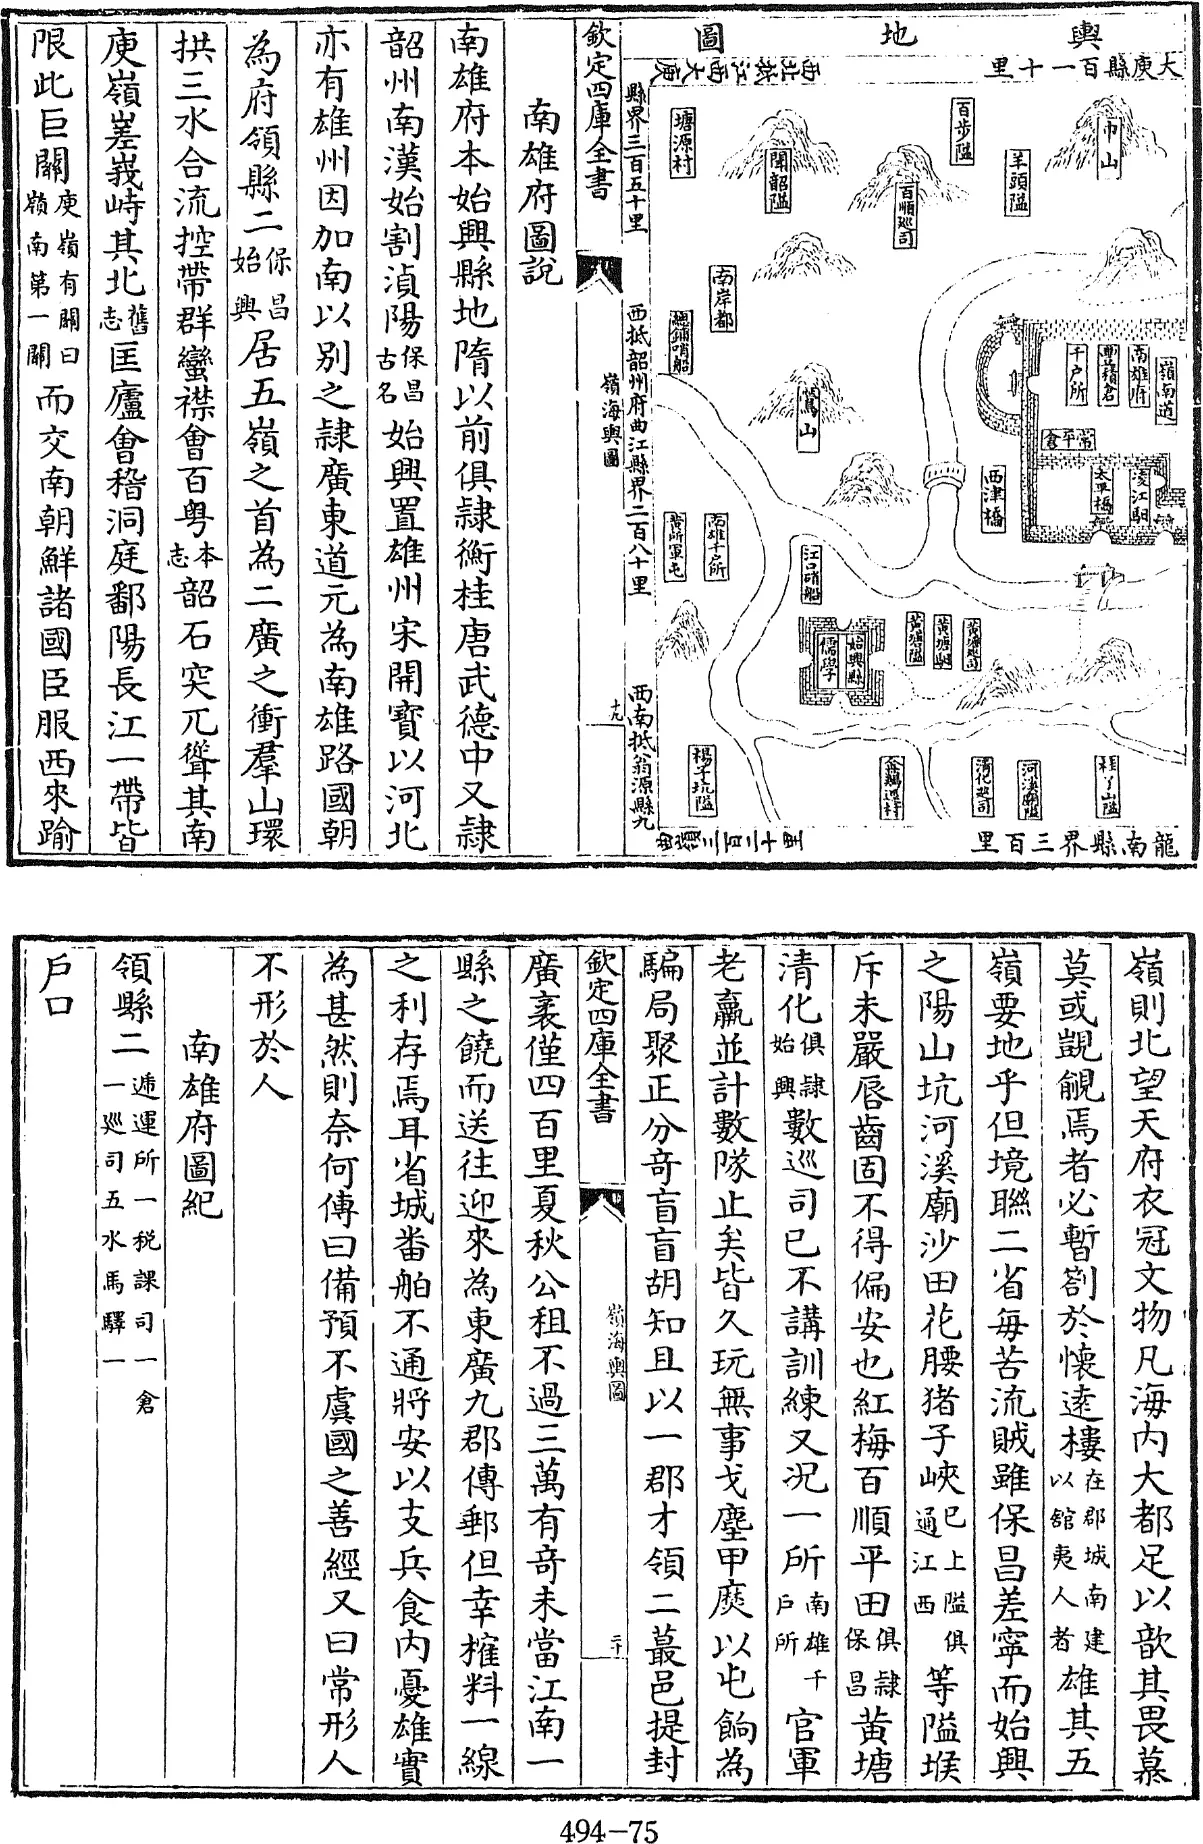 輿地圖
大庾縣百一十里
西北抵江西大庾
縣界三百五十里
西抵韶州府曲江縣界二百八十里
西南抵翁源縣九
龍南縣界三百里
巾山
羊頭隘
百步隘
百順巡司
聞韶隘
塘源村
南岸都
總鋪哨船
鶯山
嶺南道
南雄府
豐積倉
千戶所
常平倉
凌江馹
太平橋
西津橋
江口哨船
南雄千戶所
黃所軍屯
始興縣
儒學
黃塘巡司
黃塘隘
楊子坑隘
清化巡司
河溪廟隘
欽定四庫全書
嶺海輿圖
十九
南雄府圖說
南雄府本始興縣地隋以前俱隷衡桂唐武德中又隷
韶州南漢始割湞陽保昌古名始興置雄州宋開寳以河北
亦有雄州因加南以别之隷廣東道元為南雄路國朝
為府領縣二保昌始興居五嶺之首為二廣之衝羣山環
拱三水合流控帶群蠻襟會百粤本志韶石突兀聳其南
庾嶺嵳峩峙其北舊志匡廬會稽洞庭鄱陽長江一帶皆
限此巨關庾嶺有關曰嶺南第一關而交南朝鮮諸國臣服西來踰
嶺則北望天府衣冠文物凡海内大都足以歆其畏慕
莫或覬覦焉者必暫劄於懷逺樓在郡城南建以舘夷人者雄其五
嶺要地乎但境聯二省每苦流賊雖保昌差寧而始興
之陽山坑河溪廟沙田花腰猪子峽已上隘俱通江西等隘堠
斥未嚴唇齒固不得偏安也紅梅百順平田俱隷保昌黃塘
清化俱隷始興數巡司已不講訓練又况一所南雄千戶所官軍
老羸並計數隊止矣皆久玩無事戈塵甲㢤以屯餉為
騙局聚正分奇盲盲胡知且以一郡才領二蕞邑提封
欽定四庫全書
嶺海輿圖
二十
廣袤僅四百里夏秋公租不過三萬有奇未當江南一
縣之饒而送往迎來為東廣九郡傳郵但幸搉料一線
之利存焉耳省城番舶不通將安以支兵食内憂雄實
為甚然則奈何傳曰備預不虞國之善經又曰常形人
不形於人
南雄府圖紀
領縣二遞運所一税課司一倉一巡司五水馬驛一
戶口
494-75